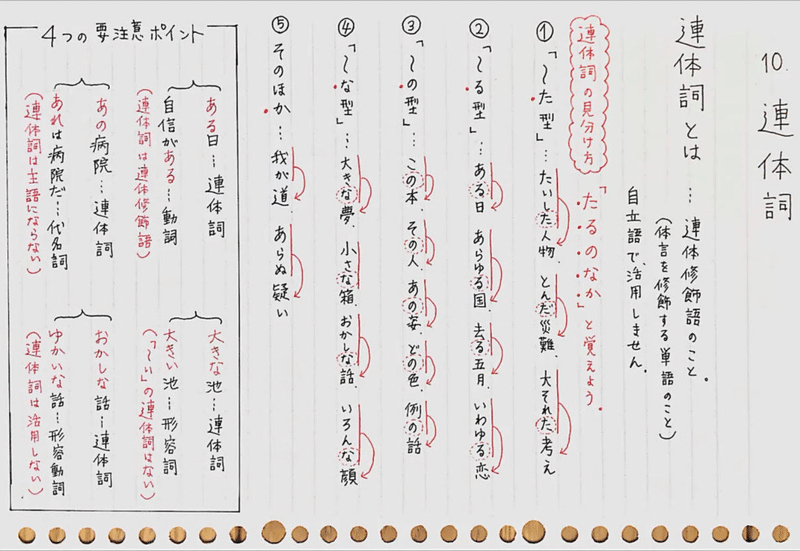 10. 連体詞
連体詞とは…連体修飾語のこと。
(体言を修飾する単語のこと)
自立語で、活用しません。
連体詞の見分け方
「たるのなか」と覚えよう。
①「〜た型」…たいした人物、とんだ災難、大それた考え
②「〜る型」…ある日、あらゆる国、去る五月、いわゆる恋
③「〜の型」…この本、その人、あの姿、どの色、例の話
④「〜な型」…大きな夢、小さな箱、おかしな話、いろんな顔
⑤そのほか…我が道、あらぬ疑い
4つの要注意ポイント
ある日…連体詞
自信がある…動詞
(連体詞は連体修飾語)
あの病院…連体詞
あれは病院だ…代名詞
(連体詞は主語にならない)
大きな池…連体詞
大きい池…形容詞
(「〜い」の連体詞はない)
おかしな話…連体詞
ゆかいな話…形容動詞
(連体詞は活用しない)